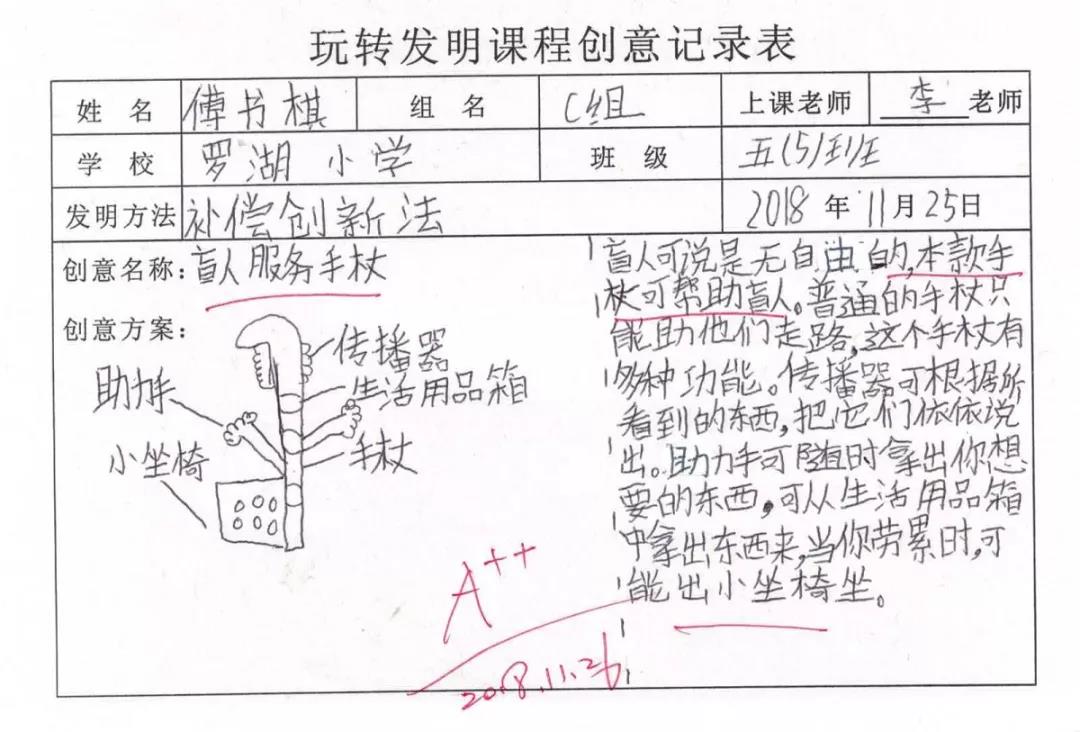 玩转发明课程创意记录表
姓 名 傅书棋 组 名 C组 上课老师 李 老师
学 校 罗湖小学 班 级 五(5)班
发明方法 补偿创新法 2018年11月25日
创意名称:盲人服务手杖
创意方案:
传播器
生活用品箱
助力手
手杖
小坐椅
盲人可说是无自由的,本款手
杖可帮助盲人。普通的手杖只
能助他们走路,这个手杖有
多种功能。传播器可根据所
看到的东西,把它们依依说
出。助力手可随时拿出你想
要的东西,可从生活用品箱
中拿出东西来,当你劳累时,可
能出小坐椅坐。
A++
2018.11.26